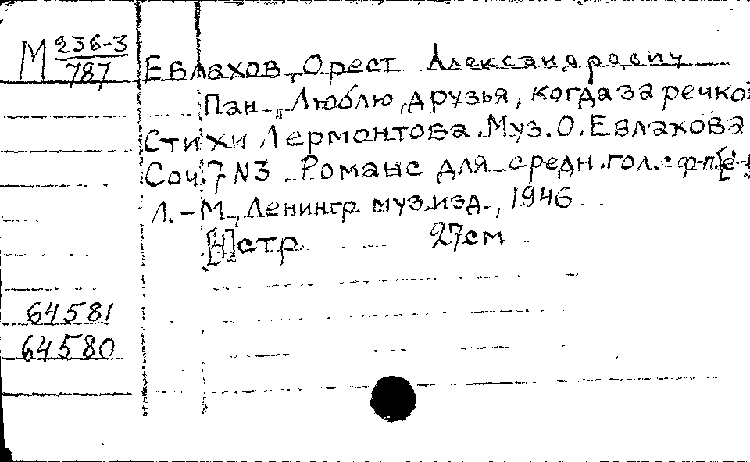 М 236-3
787
Евлахов, Орест Александрович
Пан. „Люблю, друзья, когда за речкой
Стихи Лермонтова. Муз. О. Евлахова
Соч. 7 N3 Романс для средн. гол. с ф-п.
Л.-М., Ленингр. муз. изд., 1946
стр 27см
64581
64580